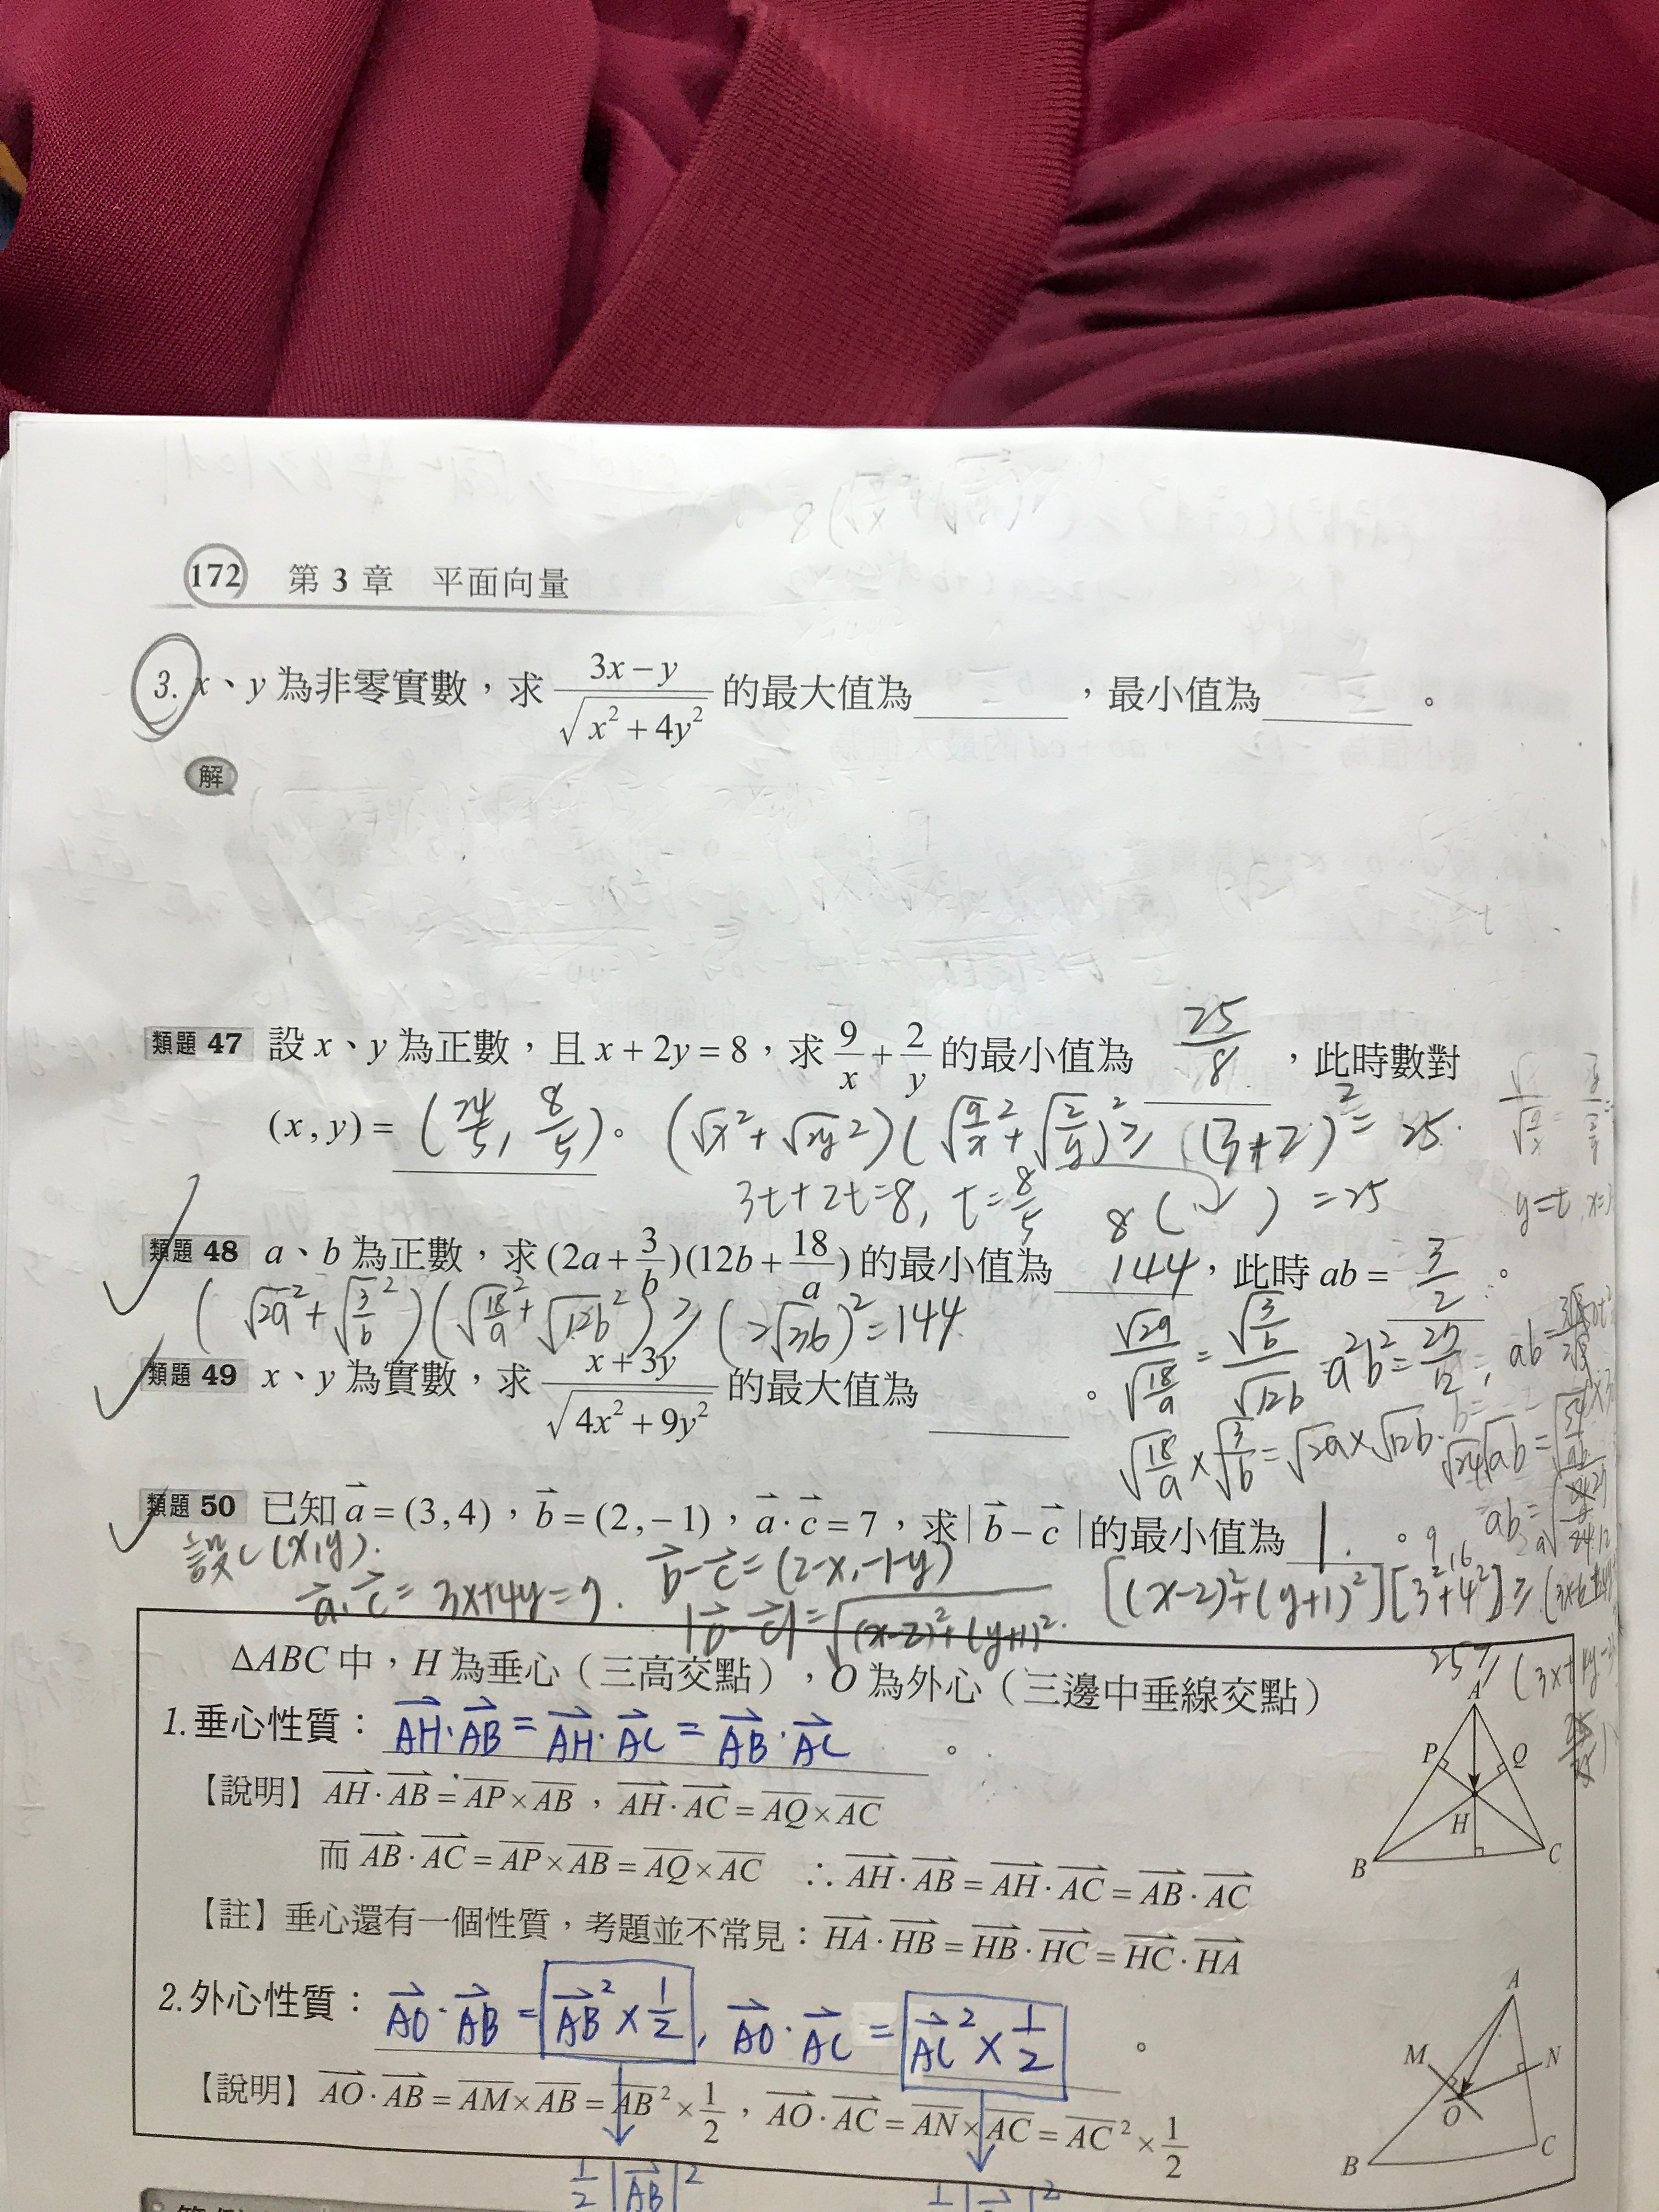 172 第 3 章 平面向量
3. x、y 為非零實數，求 (3x－y)/√(x²＋4y²) 的最大值為________，最小值為________。
解
類題 47 設 x、y 為正數，且 x＋2y＝8，求 9/x＋2/y 的最小值為 25/8，此時數對
(x , y)＝(24/5, 8/5)。 (√x²＋√2y²)(√(9/x)²＋√(2/y)²) ≥ (3＋2)²＝25.
3t＋2t＝8, t＝8/5 8( )＝25
y＝t
類題 48 a、b 為正數，求 (2a＋3/b)(12b＋18/a) 的最小值為 144，此時 ab＝3/2。
(√2a²＋√(3/b)²)(√(18/a)²＋√12b²) ≥ (2√36)²＝144
√2a/√(18/a)＝√(3/b)/√12b
類題 49 x、y 為實數，求 (x＋3y)/√(4x²＋9y²) 的最大值為________。
√(18/a)×√(3/b)＝√2a×√12b
類題 50 已知 a＝(3 , 4)，b＝(2 , －1)，a·c＝7，求 | b－c | 的最小值為 1.。
設 c(x,y).
a·c＝3x＋4y＝7. b－c＝(2－x,－1－y)
|b－c|＝√((x－2)²＋(y＋1)²). [(x－2)²＋(y＋1)²][3²＋4²] ≥
9 16
ΔABC 中，H 為垂心（三高交點），O 為外心（三邊中垂線交點）
1. 垂心性質：AH·AB＝AH·AC＝AB·AC。
【說明】AH·AB＝AP×AB，AH·AC＝AQ×AC
而 AB·AC＝AP×AB＝AQ×AC ∴AH·AB＝AH·AC＝AB·AC
【註】垂心還有一個性質，考題並不常見：HA·HB＝HB·HC＝HC·HA
A
P
Q
H
B
C
2. 外心性質：AO·AB＝AB²×1/2, AO·AC＝AC²×1/2。
【說明】AO·AB＝AM×AB＝AB²×1/2，AO·AC＝AN×AC＝AC²×1/2
A
M
N
O
B
C
1/2|AB|²